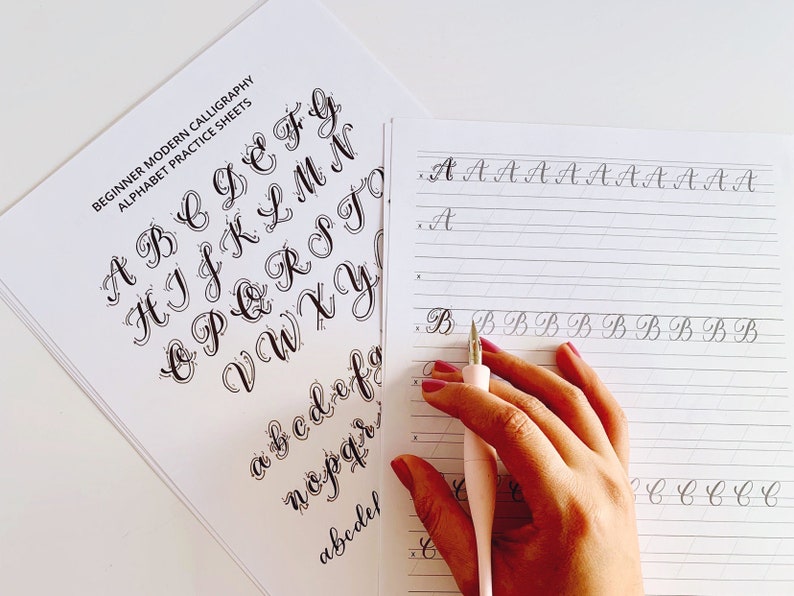 BEGINNER MODERN CALLIGRAPHY
ALPHABET PRACTICE SHEETS
A B C D E F G
H I J K L M N
O P Q R S T
V W X Y
a b c d e f g
n o p q r
abcde
x A A A A A A A A A A A
x A
x
x B B B B B B B B B B
x
x
C C C C C C
x C